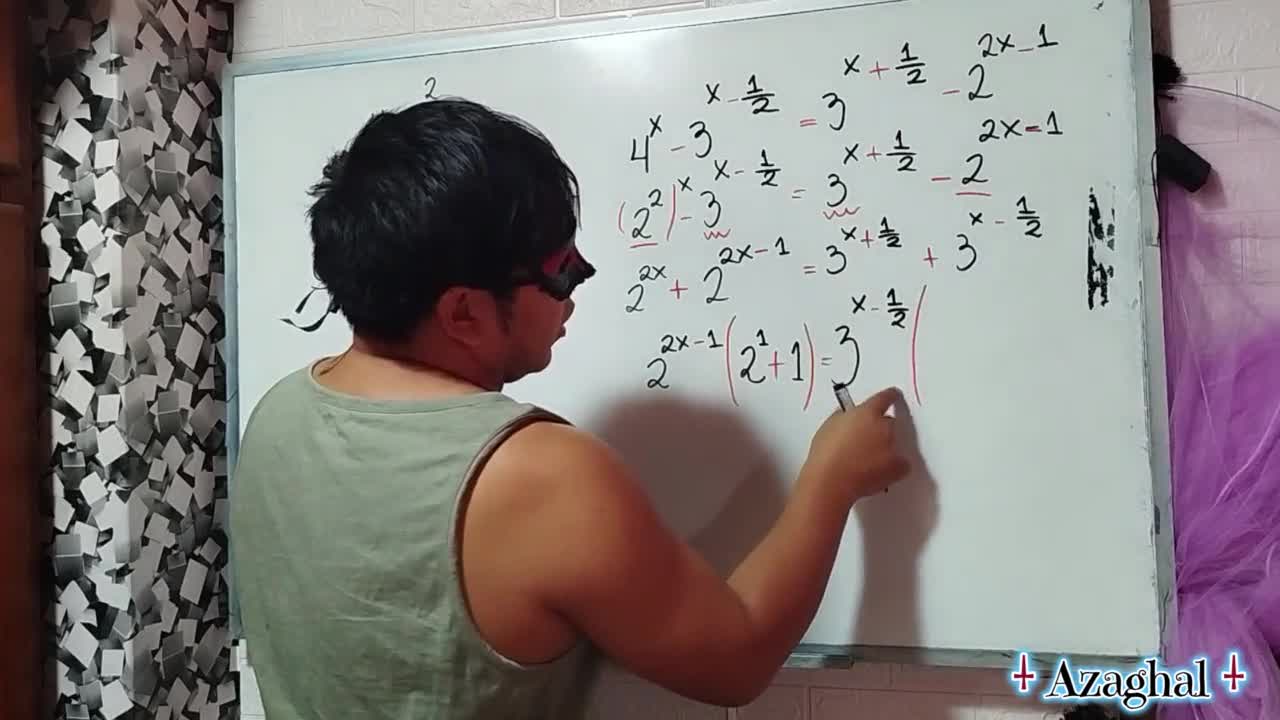 2
4^x - 3^(x - 1/2) = 3^(x + 1/2) - 2^(2x - 1)
(2^2)^x - 3^(x - 1/2) = 3^(x + 1/2) - 2^(2x - 1)
2^(2x) + 2^(2x - 1) = 3^(x + 1/2) + 3^(x - 1/2)
2^(2x - 1) (2^1 + 1) = 3^(x - 1/2) (
Azaghal